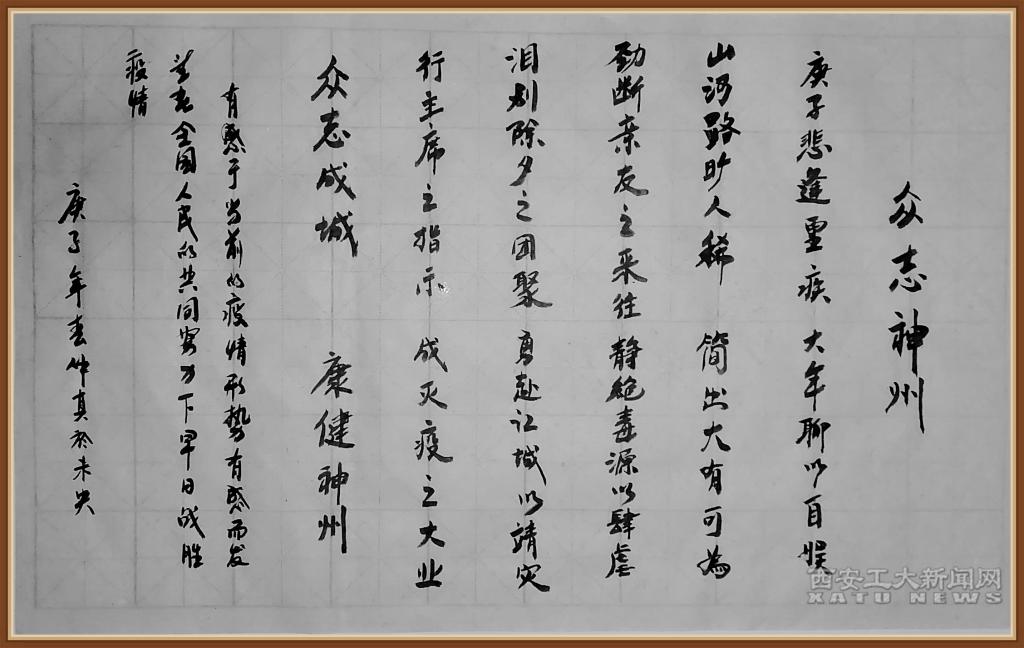 众志神州
庚子悲逢重疾 大年聊以自娱
山河路旷人稀 简出大有可为
勁断亲友之来往 静絕毒源以肆虐
泪别除夕之团聚 勇赴江城以靖灾
行主席之指示 成灭疫之大业
众志成城 康健神州
有感于当前的疫情形势有感而发
并在全国人民的共同努力下早日战胜
疫情
庚子年春仲真於未央
西安工大新闻网
XATU NEWS